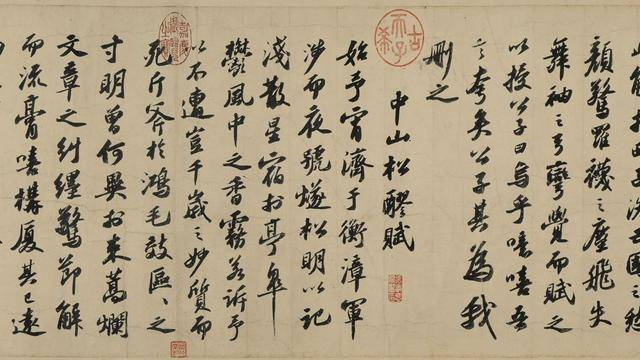 於西子洗亡國之愁
顏驚羅襪之塵飛失
舞袖之弓彎覺而賦之
以授公子曰烏乎噫嘻吾
言夸矣公子其為我
刪之
中山松醪賦
始予宵濟于衡漳軍
涉而夜號燧松明以記
淺散星宿於亭皋
鬱風中之香霧若訴予
以不遭豈千歲之妙質而
死斤斧於鴻毛效區區之
寸明曾何異於束蒿爛
文章之糾纆驚節解
而流膏嘻構廈其已遠
古希天子